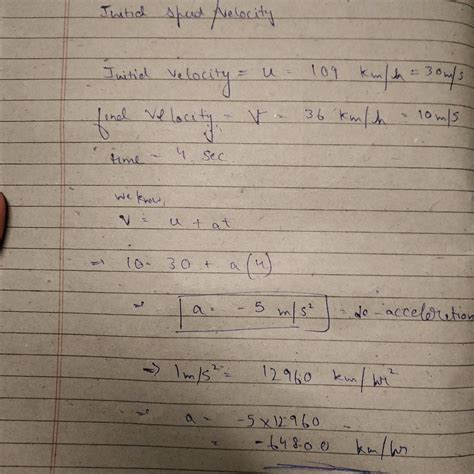 Initial speed/velocity
Initial velocity = u = 109 km/h = 30m/s
final velocity = V = 36 km/h = 10m/s
time = 4 sec
we know,
V = u + at
⇒ 10 = 30 + a(4)
⇒ a = -5 m/s² = de-acceleration
⇒ 1m/s² = 12960 km/hr²
⇒ a = -5×12960
= -64800 km/hr